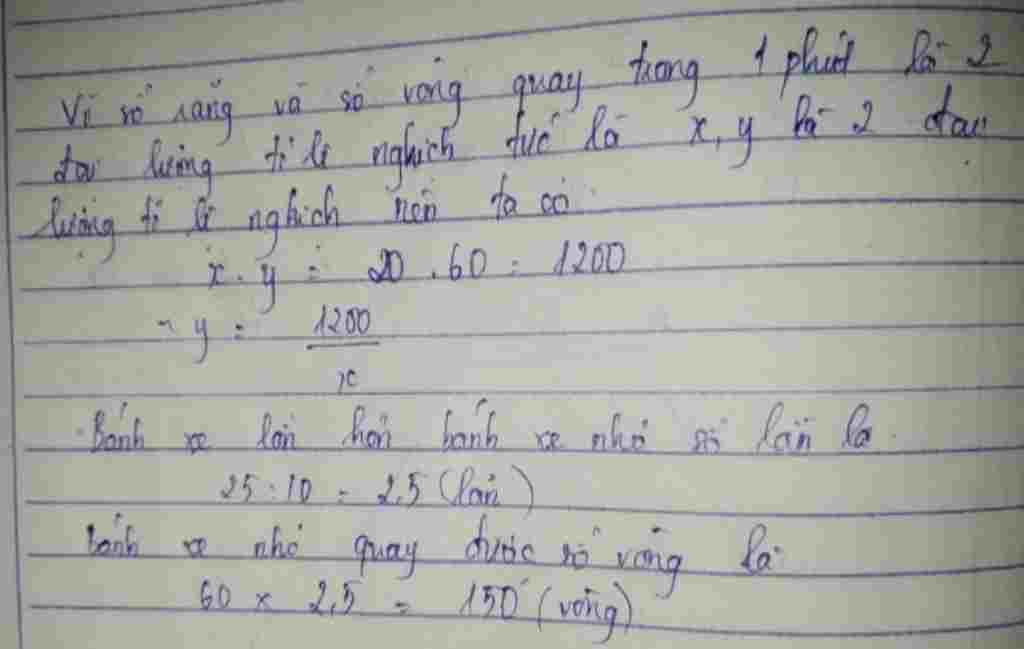 Vì số răng và số vòng quay trong 1 phút là 2
đại lượng tỉ lệ nghịch tức là x, y là 2 đại
lượng tỉ lệ nghịch nên ta có
x . y = 20 . 60 = 1200
→ y = 1200/x
Bánh xe lớn hơn bánh xe nhỏ số lần là
25 : 10 = 2,5 (lần)
Bánh xe nhỏ quay được số vòng là:
60 x 2,5 = 150 (vòng)